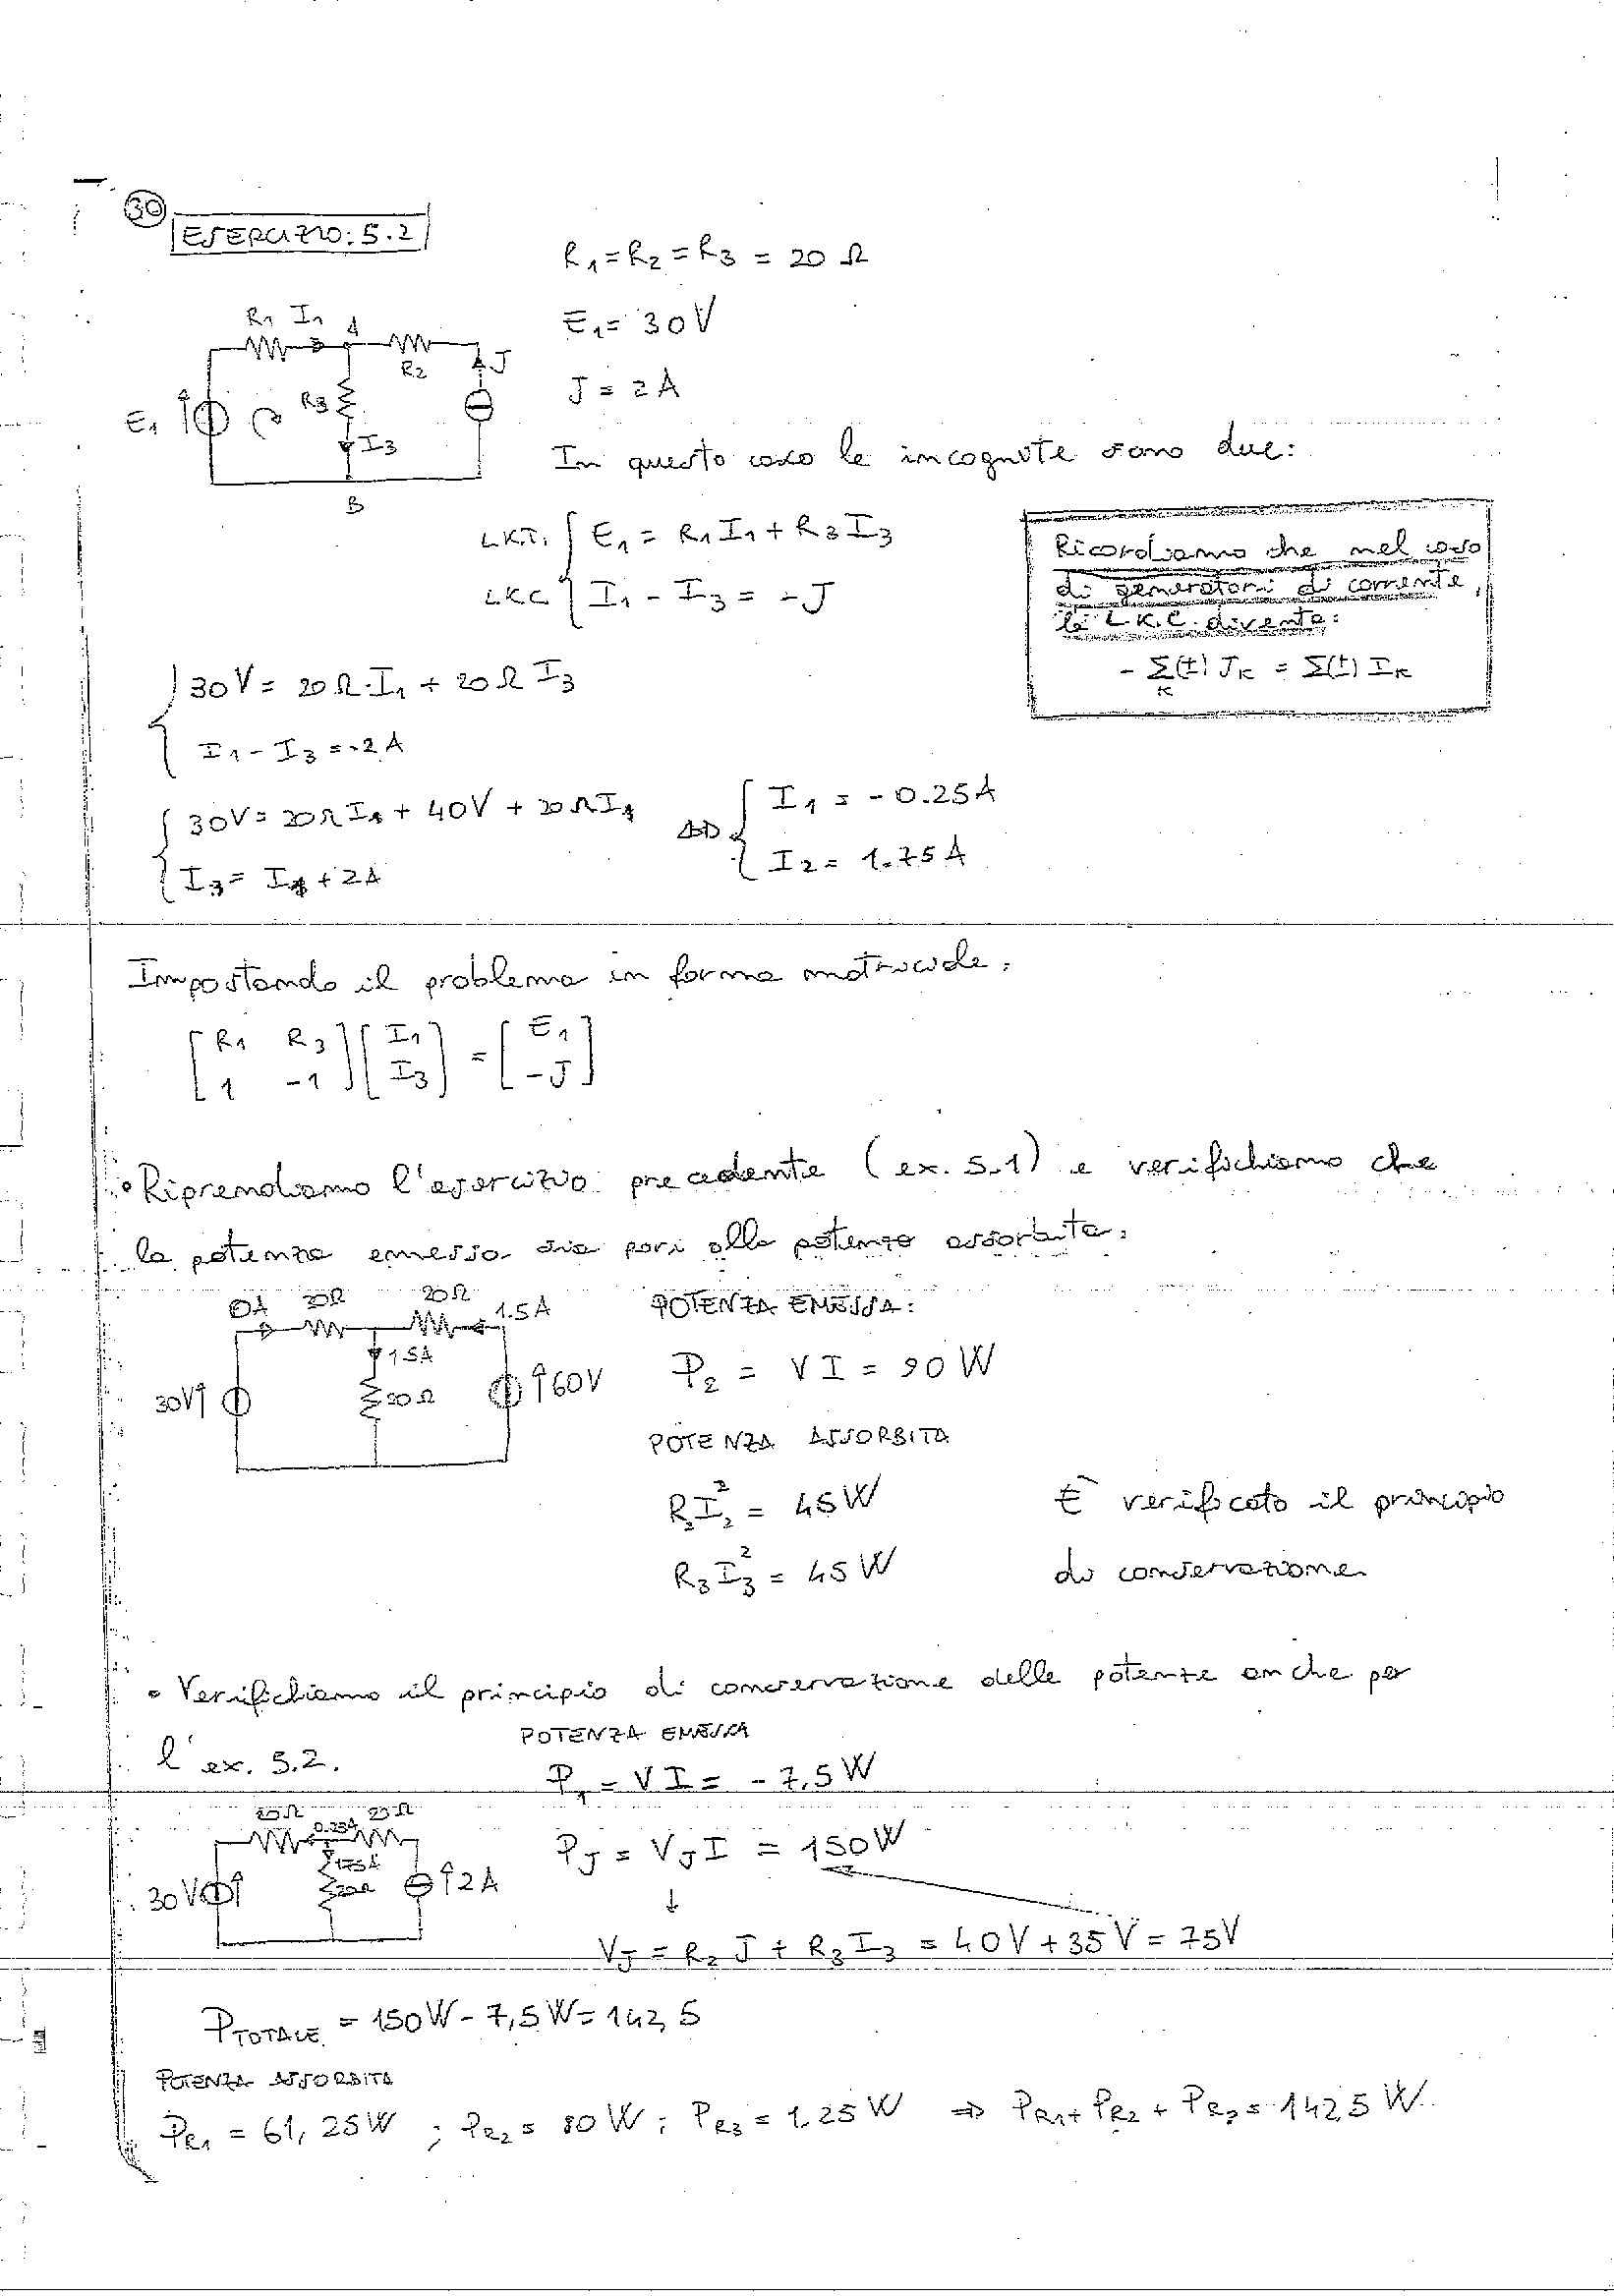 30
ESERCIZIO: 5.2
R1 = R2 = R3 = 20 Ω
E1 = 30V
J = 2A
R1 I1 A
R2
J
E1
R3
I3
B
In questo caso le incognite sono due:
L.K.T. { E1 = R1 I1 + R3 I3
L.K.C { I1 - I3 = -J
Ricordiamo che nel caso
di generatori di corrente,
la L.K.C. diventa:
- Σ(±) JK = Σ(±) IK
K
{ 30V = 20Ω·I1 + 20Ω I3
I1 - I3 = -2A
{ 30V = 20Ω I1 + 40V + 20Ω I1
I3 = I1 + 2A
{ I1 = -0.25A
I2 = 1.75A
Impostando il problema in forma matriciale:
[R1 R3] [I1] = [E1]
[1 -1] [I3] [-J]
• Riprendiamo l'esercizio precedente (ex. 5.1) e verifichiamo che
la potenza emessa sia pari alla potenza assorbita.
0A 20Ω 20Ω 1.5A
1.5A
30V 20Ω 60V
POTENZA EMESSA:
P2 = VI = 90W
POTENZA ASSORBITA
R2I2² = 45W
R3I3² = 45W
È verificato il principio
di conservazione
• Verifichiamo il principio di conservazione delle potenze anche per
l'ex. 5.2.
POTENZA EMESSA
P1 = VI = -7,5W
20Ω 20Ω
0.25A
1.75A
30V 20Ω 2A
PJ = VJ I = 150W
VJ = R2 J + R3 I3 = 40V + 35V = 75V
PTOTALE = 150W - 7,5W = 142,5
POTENZA ASSORBITA
PR1 = 61,25W ; PR2 = 80W ; PR3 = 1,25W ⇒ PR1 + PR2 + PR3 = 142,5 W.